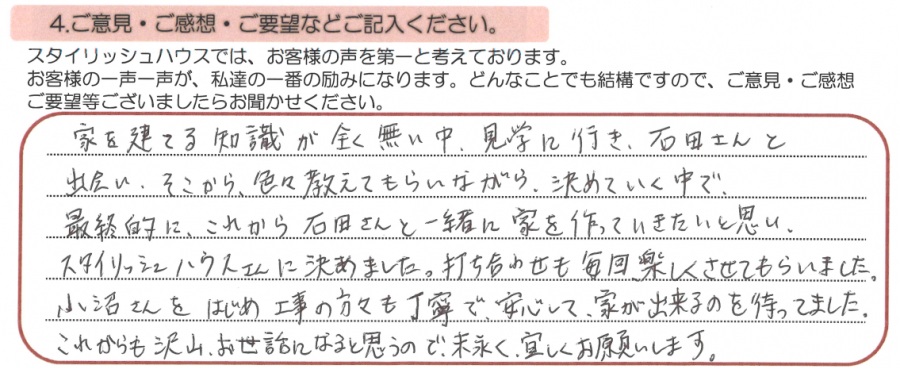 4.ご意見・ご感想・ご要望などご記入ください。
スタイリッシュハウスでは、お客様の声を第一と考えております。
お客様の一声一声が、私達の一番の励みになります。どんなことでも結構ですので、ご意見・ご感想
ご要望等ございましたらお聞かせください。
家を建てる知識が全く無い中、見学に行き、石田さんと
出会い、そこから、色々教えてもらいながら、決めていく中で、
最終的に、これから石田さんと一緒に家を作っていきたいと思い、
スタイリッシュハウスさんに決めました。打ち合わせも毎回楽しくさせてもらいました。
小沼さんをはじめ工事の方々も丁寧で、安心して、家が出来るのを待ってました。
これからも沢山、お世話になると思うので、末永く、宜しくお願いします。